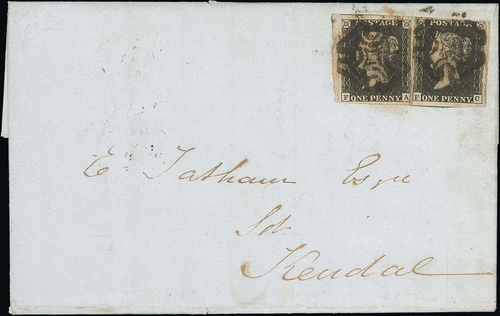 POSTAGE POSTAGE
F ONE PENNY A F ONE PENNY C
E Tatham Esqre
Solr
Kendal